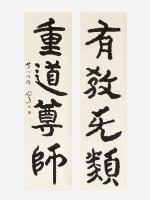 有教无類
重道尊師